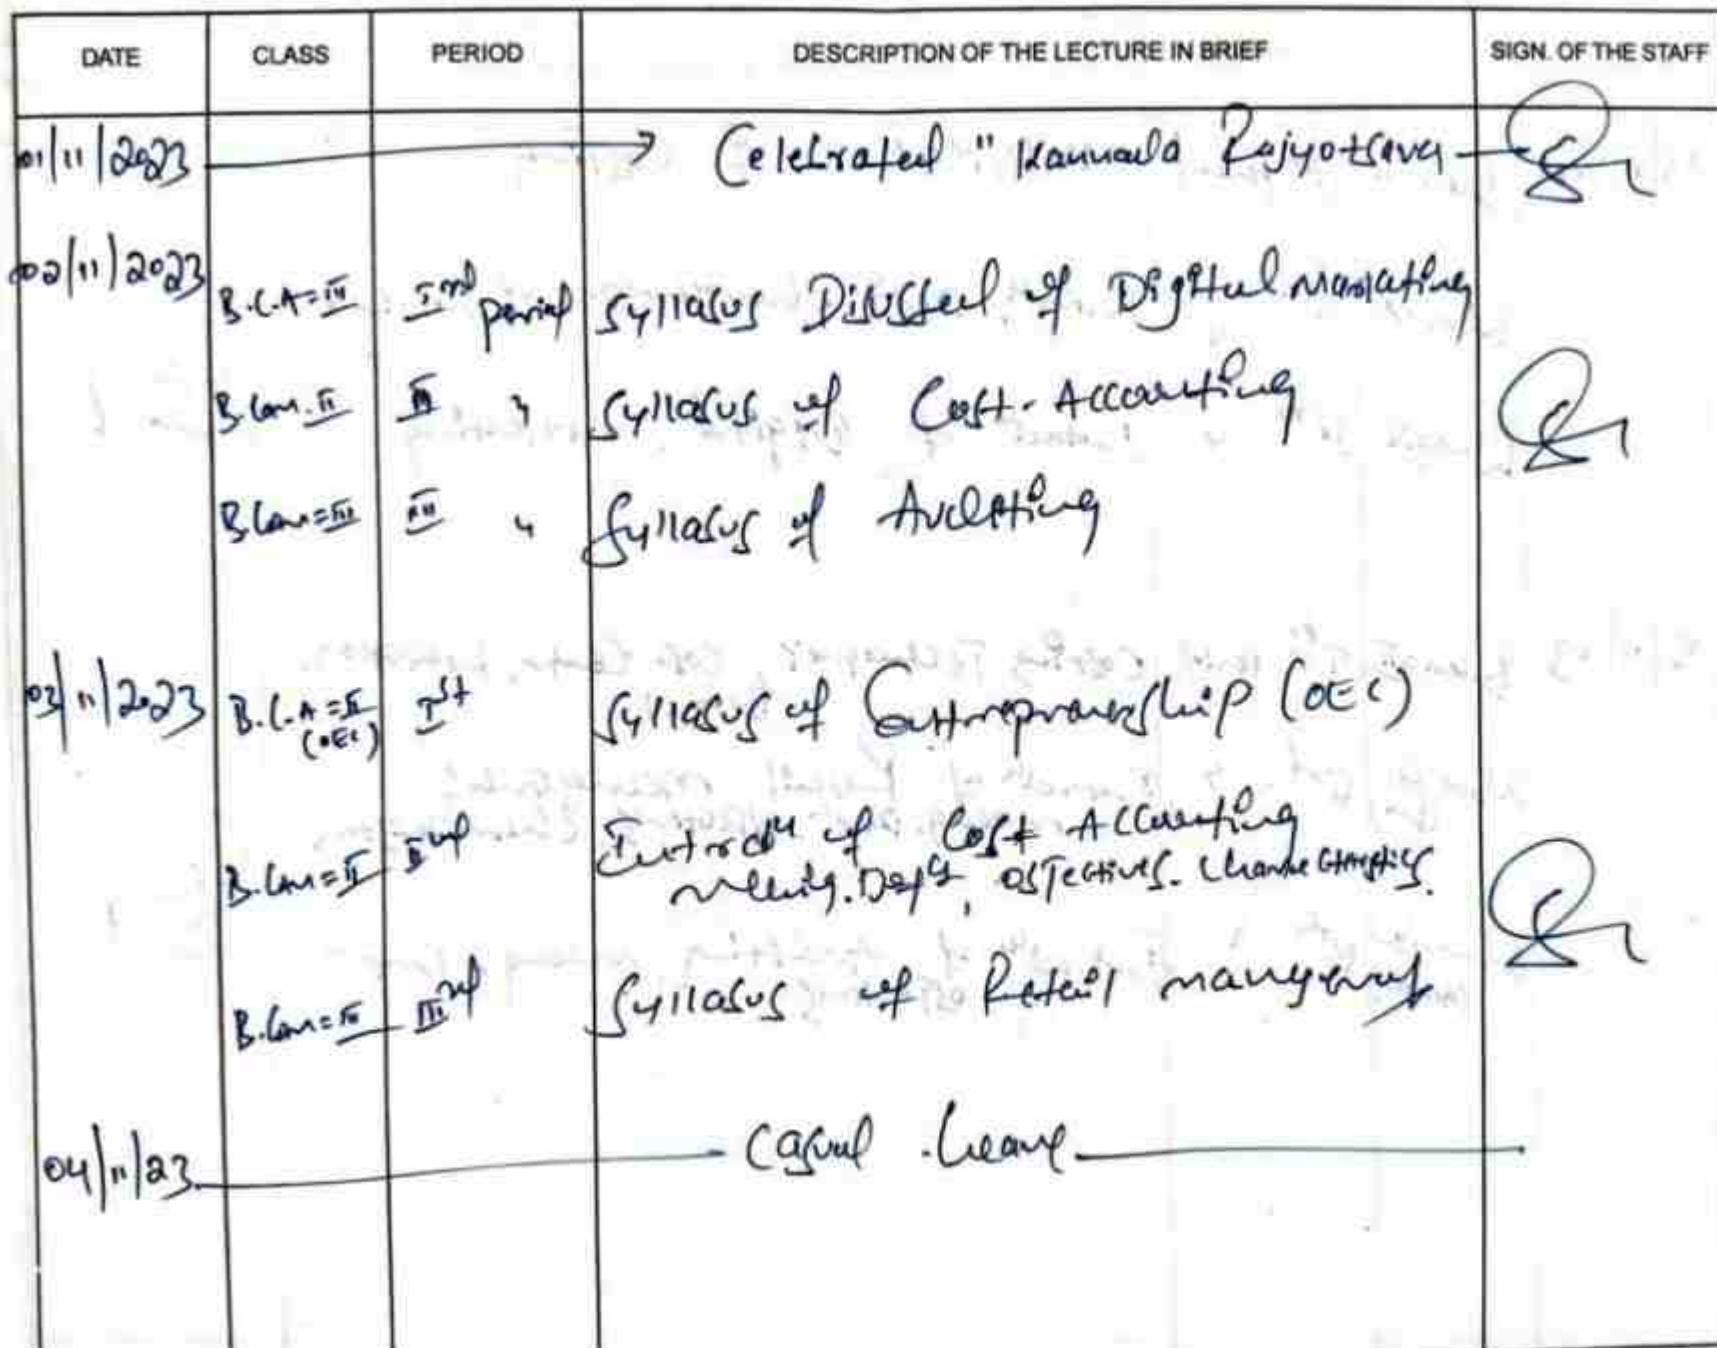 DATE CLASS PERIOD DESCRIPTION OF THE LECTURE IN BRIEF SIGN. OF THE STAFF
01/11/2023 Celebrated " Kannada Rajyotsava
02/11/2023 B.C.A=III period Syllabus Discussed of Digital Marketing
B.Com.II " Syllabus of Cost-Accounting
B.Com=III III " Syllabus of Auditing
03/11/2023 B.C.A=II (OEC) Ist Syllabus of Entrepreneurship (OEC)
B.Com=II IInd Introdn of Cost Accounting
Meaning. Defn, Objectives. Characteristics.
B.Com=III IIIrd Syllabus of Retail management
04/11/23 Casual Leave